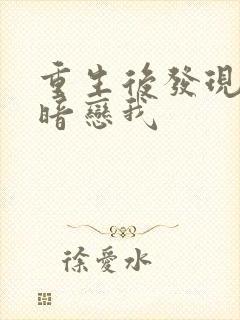 重生後發現
暗戀我
徐愛水